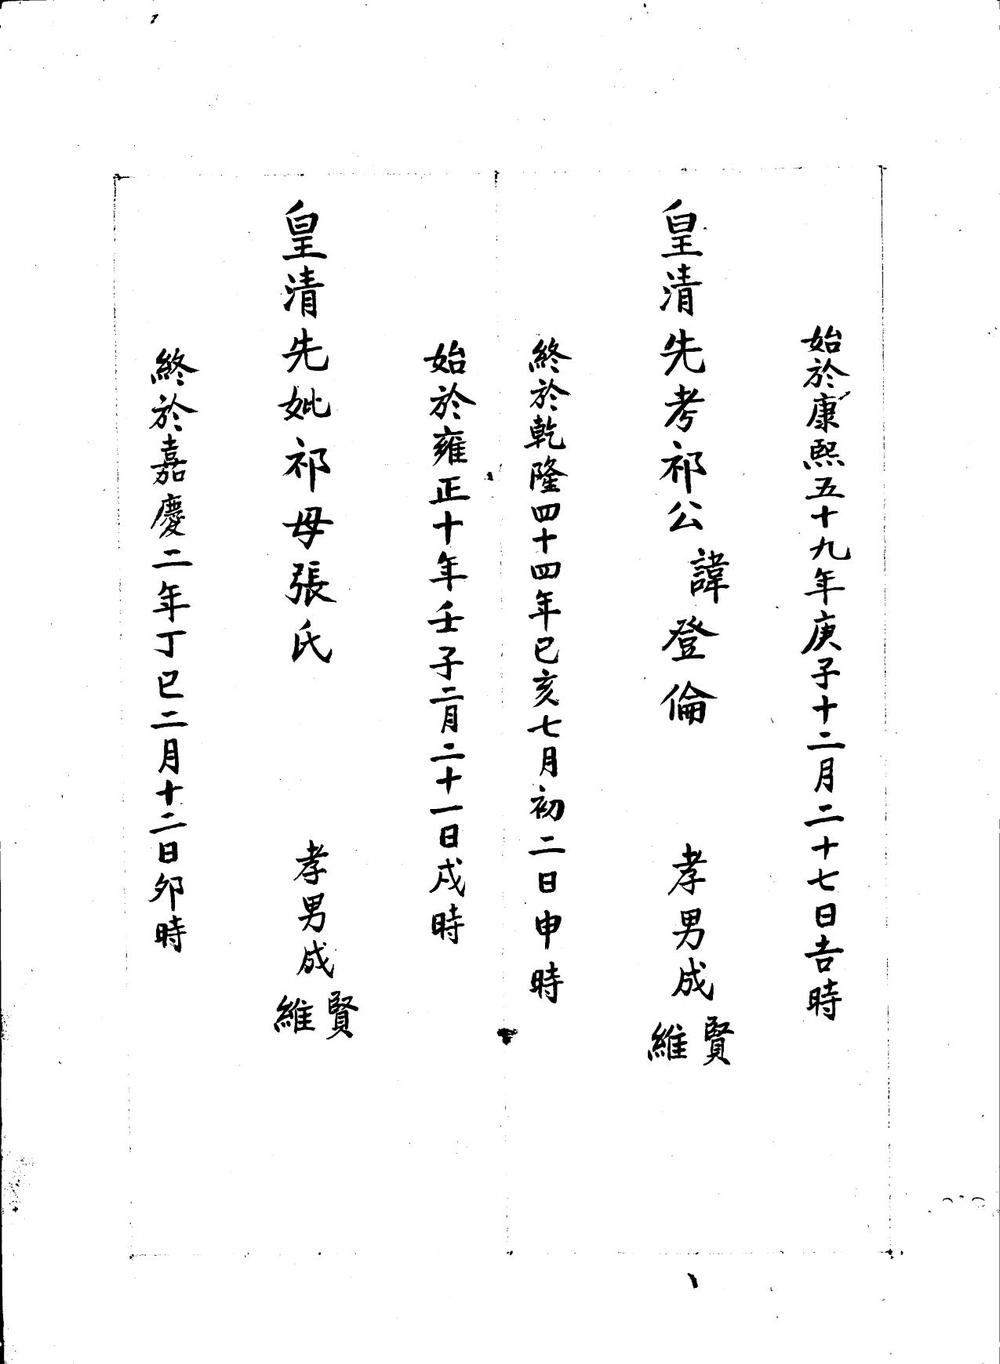 始於康熙五十九年庚子十二月二十七日吉時
皇清先考祁公諱登倫
孝男成賢維
終於乾隆四十四年已亥七月初二日申時
始於雍正十年壬子二月二十一日戍時
皇清先妣祁母張氏
孝男成賢維
終於嘉慶二年丁巳二月十二日夘時